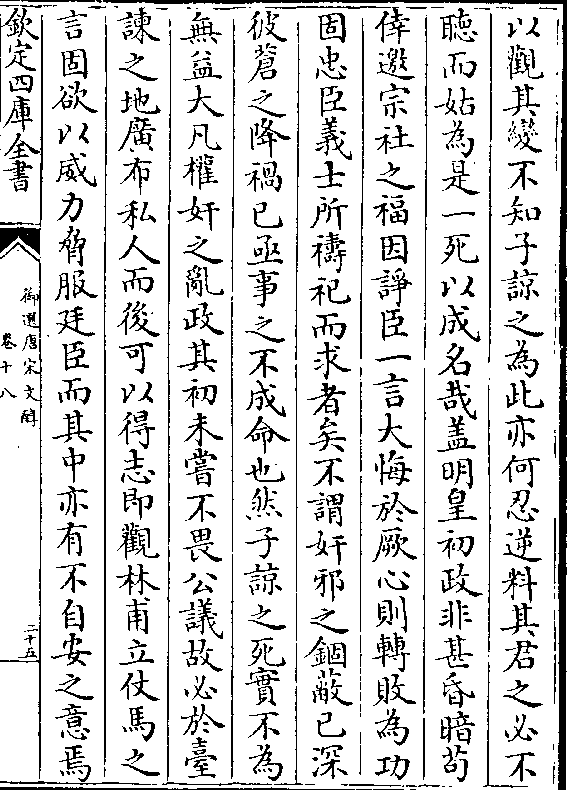 以觀其變不知子諒之為此亦何忍逆料其君之必不
聴而姑為是一死以成名哉盖明皇初政非甚昏暗苟
倖邀宗社之福因諍臣一言大悔於厥心則轉敗為功
固忠臣義士所禱祀而求者矣不謂奸邪之錮蔽已深
彼蒼之降禍已亟事之不成命也然子諒之死實不為
無益大凡權奸之亂政其初未嘗不畏公議故必於臺
諫之地廣布私人而後可以得志即觀林甫立仗馬之
言固欲以威力脅服廷臣而其中亦有不自安之意焉
欽定四庫全書
御選唐宋文醇
卷十八
二十五